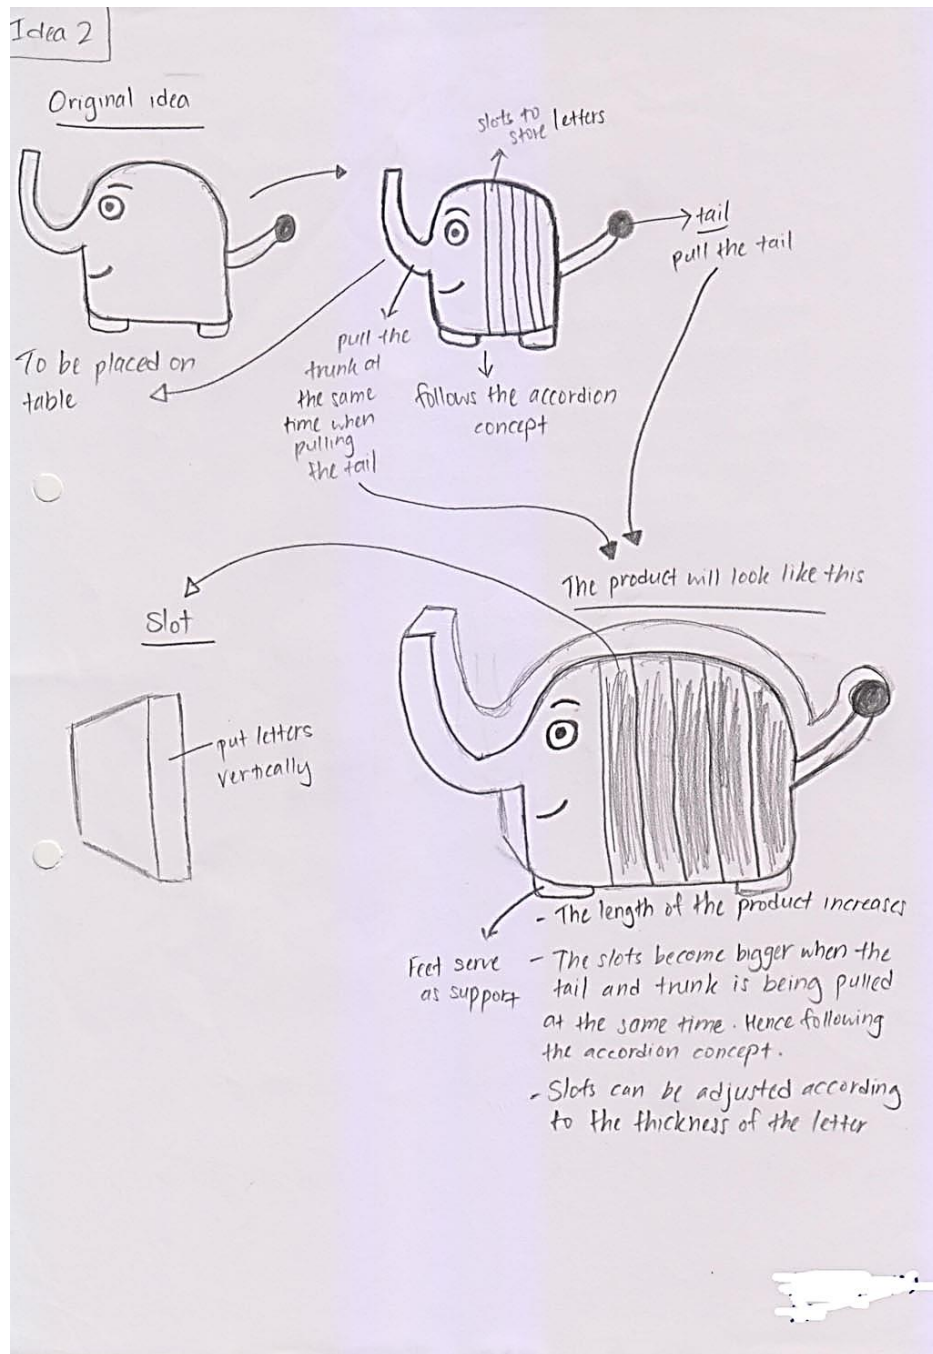 Idea 2
Original idea
slots to letters
store
tail
pull the tail
To be placed on
table
pull the
trunk at
the same
time when
pulling
the tail
follows the accordion
concept
The product will look like this
Slot
put letters
vertically
Feet serve
as support
- The length of the product increases
- The slots become bigger when the
tail and trunk is being pulled
at the same time. Hence following
the accordion concept.
- Slots can be adjusted according
to the thickness of the letter